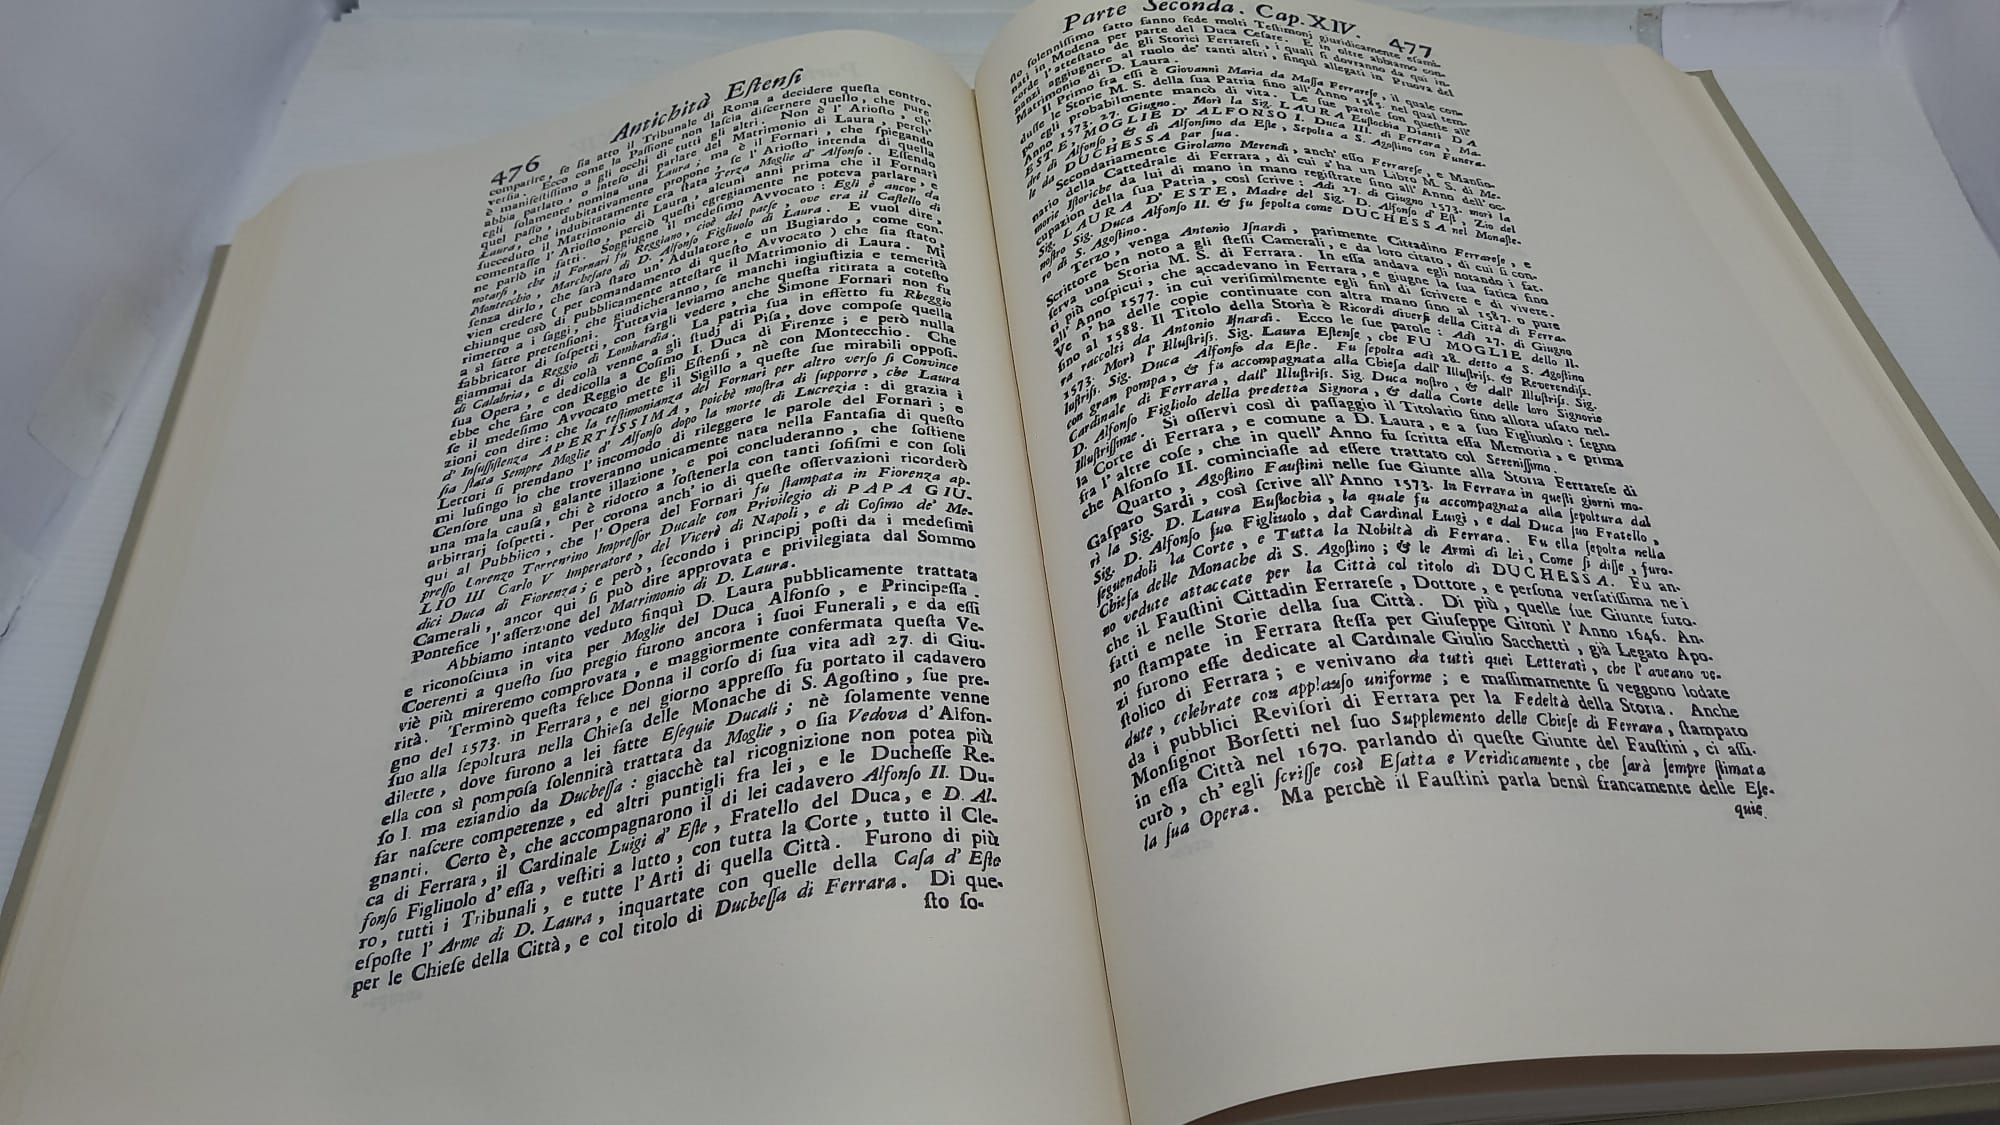 476 Antichità Eſtenſi
comparire, ſe ſia atto il Tribunale di Roma a decidere queſta contro-
verſia. Ecco come la Paſſione non laſcia diſcernere quello, che pure
è manifeſtiſſimo a gli occhi di tutti gli altri. Non è l' Arioſto, ch'
abbia parlato, o inteſo di parlare del Matrimonio di Laura, perch'
egli ſolamente nomina una Laura; ma è il Fornari, che ſpiegando
quel paſſo, indubitatamente propone, ſe l' Arioſto intenda di quella
Laura, che indubitatamente era ſtata Terza Moglie d' Alfonſo. Eſſendo
ſucceduto il Matrimonio di Laura, alcuni anni prima che il Fornari
comentaſſe l' Arioſto, perciò queſti egregiamente ne poteva parlare, e
ne parlò in fatti. Soggiugne il medeſimo Avvocato: Egli è ancor da
notarſi, che il Fornari fu Reggiano, cioè del paeſe, ove era il Caſtello di
Montecchio, Marcheſato di D. Alfonſo Figliuolo di Laura. E vuol dire,
ſenza dirlo, che ſarà ſtato un' Adulatore, e un Bugiardo, come con-
vien credere (per comandamento di queſto Avvocato) che ſia ſtato,
chiunque osò di pubblicamente atteſtare il Matrimonio di Laura. Mi
rimetto a i ſaggi, che giudicheranno, ſe manchi ingiuſtizia e temerità
a sì fatte pretenſioni. Tuttavia leviamo anche queſta ritirata a coteſto
fabbricator di ſoſpetti, con fargli vedere, che Simone Fornari non fu
giammai da Reggio di Lombardia. La patria ſua in effetto fu Rheggio
di Calabria, e di colà venne a gli ſtudj di Piſa, dove compoſe quella
ſua Opera, e dedicolla a Coſimo I. Duca di Firenze; e però nulla
ebbe che fare con Reggio de gli Eſtenſi, nè con Montecchio. Che
ſe il medeſimo Avvocato mette il Sigillo a queſte ſue mirabili oppoſi-
zioni con dire: che la teſtimonianza del Fornari per altro verſo ſi Convince
d' Inſuſſiſtenza APERTISSIMA, poichè moſtra di ſupporre, che Laura
ſia ſtata Sempre Moglie d' Alfonſo dopo la morte di Lucrezia: di grazia i
Lettori ſi prendano l' incomodo di rileggere le parole del Fornari; e
mi luſingo io che troveranno unicamente nata nella Fantaſia di queſto
Cenſore una sì galante illazione, e poi concluderanno, che ſoſtiene
una mala cauſa, chi è ridotto a ſoſtenerla con tanti ſofiſmi e con ſoli
arbitrarj ſoſpetti. Per corona anch' io di queſte oſſervazioni ricorderò
qui al Pubblico, che l' Opera del Fornari fu ſtampata in Fiorenza ap-
preſſo Lorenzo Torrentino Impreſſor Ducale con Privilegio di PAPA GIU-
LIO III Carlo V Imperatore, del Vicerè di Napoli, e di Coſimo de' Me-
dici Duca di Fiorenza; e però, ſecondo i principj poſti da i medeſimi
Camerali, ancor qui ſi può dire approvata e privilegiata dal Sommo
Pontefice l' aſſerzione del Matrimonio di D. Laura.
Abbiamo intanto veduto finquì D. Laura pubblicamente trattata
e riconoſciuta in vita per Moglie del Duca Alfonſo, e Principeſſa.
Coerenti a queſto ſuo pregio furono ancora i ſuoi Funerali, e da eſſi
viè più mireremo comprovata, e maggiormente confermata queſta Ve-
rità. Terminò queſta felice Donna il corſo di ſua vita adì 27. di Giu-
gno del 1573. in Ferrara, e nel giorno appreſſo fu portato il cadavero
ſuo alla ſepoltura nella Chieſa delle Monache di S. Agoſtino, ſue pre-
dilette, dove furono a lei fatte Eſequie Ducali; nè ſolamente venne
ella con sì pompoſa ſolennità trattata da Moglie, o ſia Vedova d' Alfon-
ſo I. ma eziandio da Ducheſſa: giacchè tal ricognizione non potea più
far naſcere competenze, ed altri puntigli fra lei, e le Ducheſſe Re-
gnanti. Certo è, che accompagnarono il di lei cadavero Alfonſo II. Du-
ca di Ferrara, il Cardinale Luigi d' Eſte, Fratello del Duca, e D. Al-
fonſo Figliuolo d' eſſa, veſtiti a lutto, con tutta la Corte, tutto il Cle-
ro, tutti i Tribunali, e tutte l' Arti di quella Città. Furono di più
eſpoſte l' Arme di D. Laura, inquartate con quelle della Caſa d' Eſte
per le Chieſe della Città, e col titolo di Ducheſſa di Ferrara. Di que-
ſto ſo-
Parte Seconda. Cap. XIV. 477
ſto ſolenniſſimo fatto fanno fede molti Teſtimoni giuridicamente eſami-
nati in Modena per parte del Duca Ceſare. E in oltre abbiamo con-
corde l' atteſtato de gli Storici Ferrareſi, i quali ſi dovranno da quì in-
nanzi aggiugnere al ruolo de' tanti altri, finquì allegati in Pruova del
Matrimonio di D. Laura.
Il Primo fra eſſi è Giovanni Maria da Maſſa Ferrareſe, il quale con-
duſſe le Storie M. S. della ſua Patria fino all' Anno 1585. nel qual tem-
po egli probabilmente mancò di vita. Le ſue parole ſon queſte all'
Anno 1573. 27. Giugno. Morì la Sig. LAURA Euſtochia Dianti DA
ESTE, MOGLIE D' ALFONSO I. Duca III. di Ferrara, Ma-
dre di Alfonſo, & di Alfonſino da Eſte, Sepolta a S. Agoſtino con Funera-
li da DUCHESSA par ſua.
Secondariamente Girolamo Merendi, anch' eſſo Ferrareſe, e Manſio-
nario della Cattedrale di Ferrara, di cui s' ha un Libro M. S. di Me-
morie Iſtoriche da lui di mano in mano regiſtrate fino all' Anno dell' oc-
cupazion della ſua Patria, così ſcrive: Adì 27. di Giugno 1573. morì la
Sig. LAURA D' ESTE, Madre del Sig. D. Alfonſo d' Eſt, Zio del
noſtro Sig. Duca Alfonſo II. & fu ſepolta come DUCHESSA nel Monaſte-
ro di S. Agoſtino.
Terzo, venga Antonio Iſnardi, parimente Cittadino Ferrareſe, e
Scrittore ben noto a gli ſteſſi Camerali, e da loro citato, di cui ſi con-
ſerva una Storia M. S. di Ferrara. In eſſa andava egli notando i fat-
ti più coſpicui, che accadevano in Ferrara, e giugne la ſua fatica fino
all' Anno 1577. in cui veriſimilmente egli finì di ſcrivere e di vivere.
Ve n' ha delle copie continuate con altra mano fino al 1587. o pure
fino al 1588. Il Titolo della Storia è Ricordi diverſi della Città di Ferra-
ra raccolti da Antonio Iſnardi. Ecco le ſue parole: Adì 27. di Giugno
1573. Morì l' Illuſtriſs. Sig. Laura Eſtenſe, che FU MOGLIE dello Il-
luſtriſs. Sig. Duca Alfonſo da Eſte. Fu ſepolta adì 28. detto a S. Agoſtino
con gran pompa, & fu accompagnata alla Chieſa dall' Illuſtriſs. & Reverendiſs.
Cardinale di Ferrara, dall' Illuſtriſs. Sig. Duca noſtro, & dall' Illuſtriſs. Sig.
D. Alfonſo Figliolo della predetta Signora, & dalla Corte delle loro Signorie
Illuſtriſſime. Si oſſervi così di paſſaggio il Titolario fino allora uſato nel-
la Corte di Ferrara, e comune a D. Laura, e a ſuo Figliuolo: ſegno
fra l' altre coſe, che in quell' Anno fu ſcritta eſſa Memoria, e prima
che Alfonſo II. cominciaſſe ad eſſere trattato col Sereniſſimo.
Quarto, Agoſtino Fauſtini nelle ſue Giunte alla Storia Ferrareſe di
Gaſparo Sardi, così ſcrive all' Anno 1573. In Ferrara in queſti giorni mo-
rì la Sig. D. Laura Euſtochia, la quale fu accompagnata alla ſepoltura dal
Sig. D. Alfonſo ſuo Figliuolo, dal Cardinal Luigi, e dal Duca ſuo Fratello,
ſeguendoli la Corte, e Tutta la Nobiltà di Ferrara. Fu ella ſepolta nella
Chieſa delle Monache di S. Agoſtino; & le Armi di lei, Come ſi diſſe, furo-
no vedute attaccate per la Città col titolo di DUCHESSA. Fu an-
che il Fauſtini Cittadin Ferrareſe, Dottore, e perſona verſatiſſima ne i
fatti e nelle Storie della ſua Città. Di più, quelle ſue Giunte furo-
no ſtampate in Ferrara ſteſſa per Giuſeppe Gironi l' Anno 1646. An-
zi furono eſſe dedicate al Cardinale Giulio Sacchetti, già Legato Apo-
ſtolico di Ferrara; e venivano da tutti quei Letterati, che l' aveano ve-
dute, celebrate con applauſo uniforme; e maſſimamente ſi veggono lodate
da i pubblici Reviſori di Ferrara per la Fedeltà della Storia. Anche
Monſignor Borſetti nel ſuo Supplemento delle Chieſe di Ferrara, ſtampato
in eſſa Città nel 1670. parlando di queſte Giunte del Fauſtini, ci aſſi-
curò, ch' egli ſcriſſe così Eſatta e Veridicamente, che ſarà ſempre ſtimata
la ſua Opera. Ma perchè il Fauſtini parla bensì francamente delle Eſe-
quie.